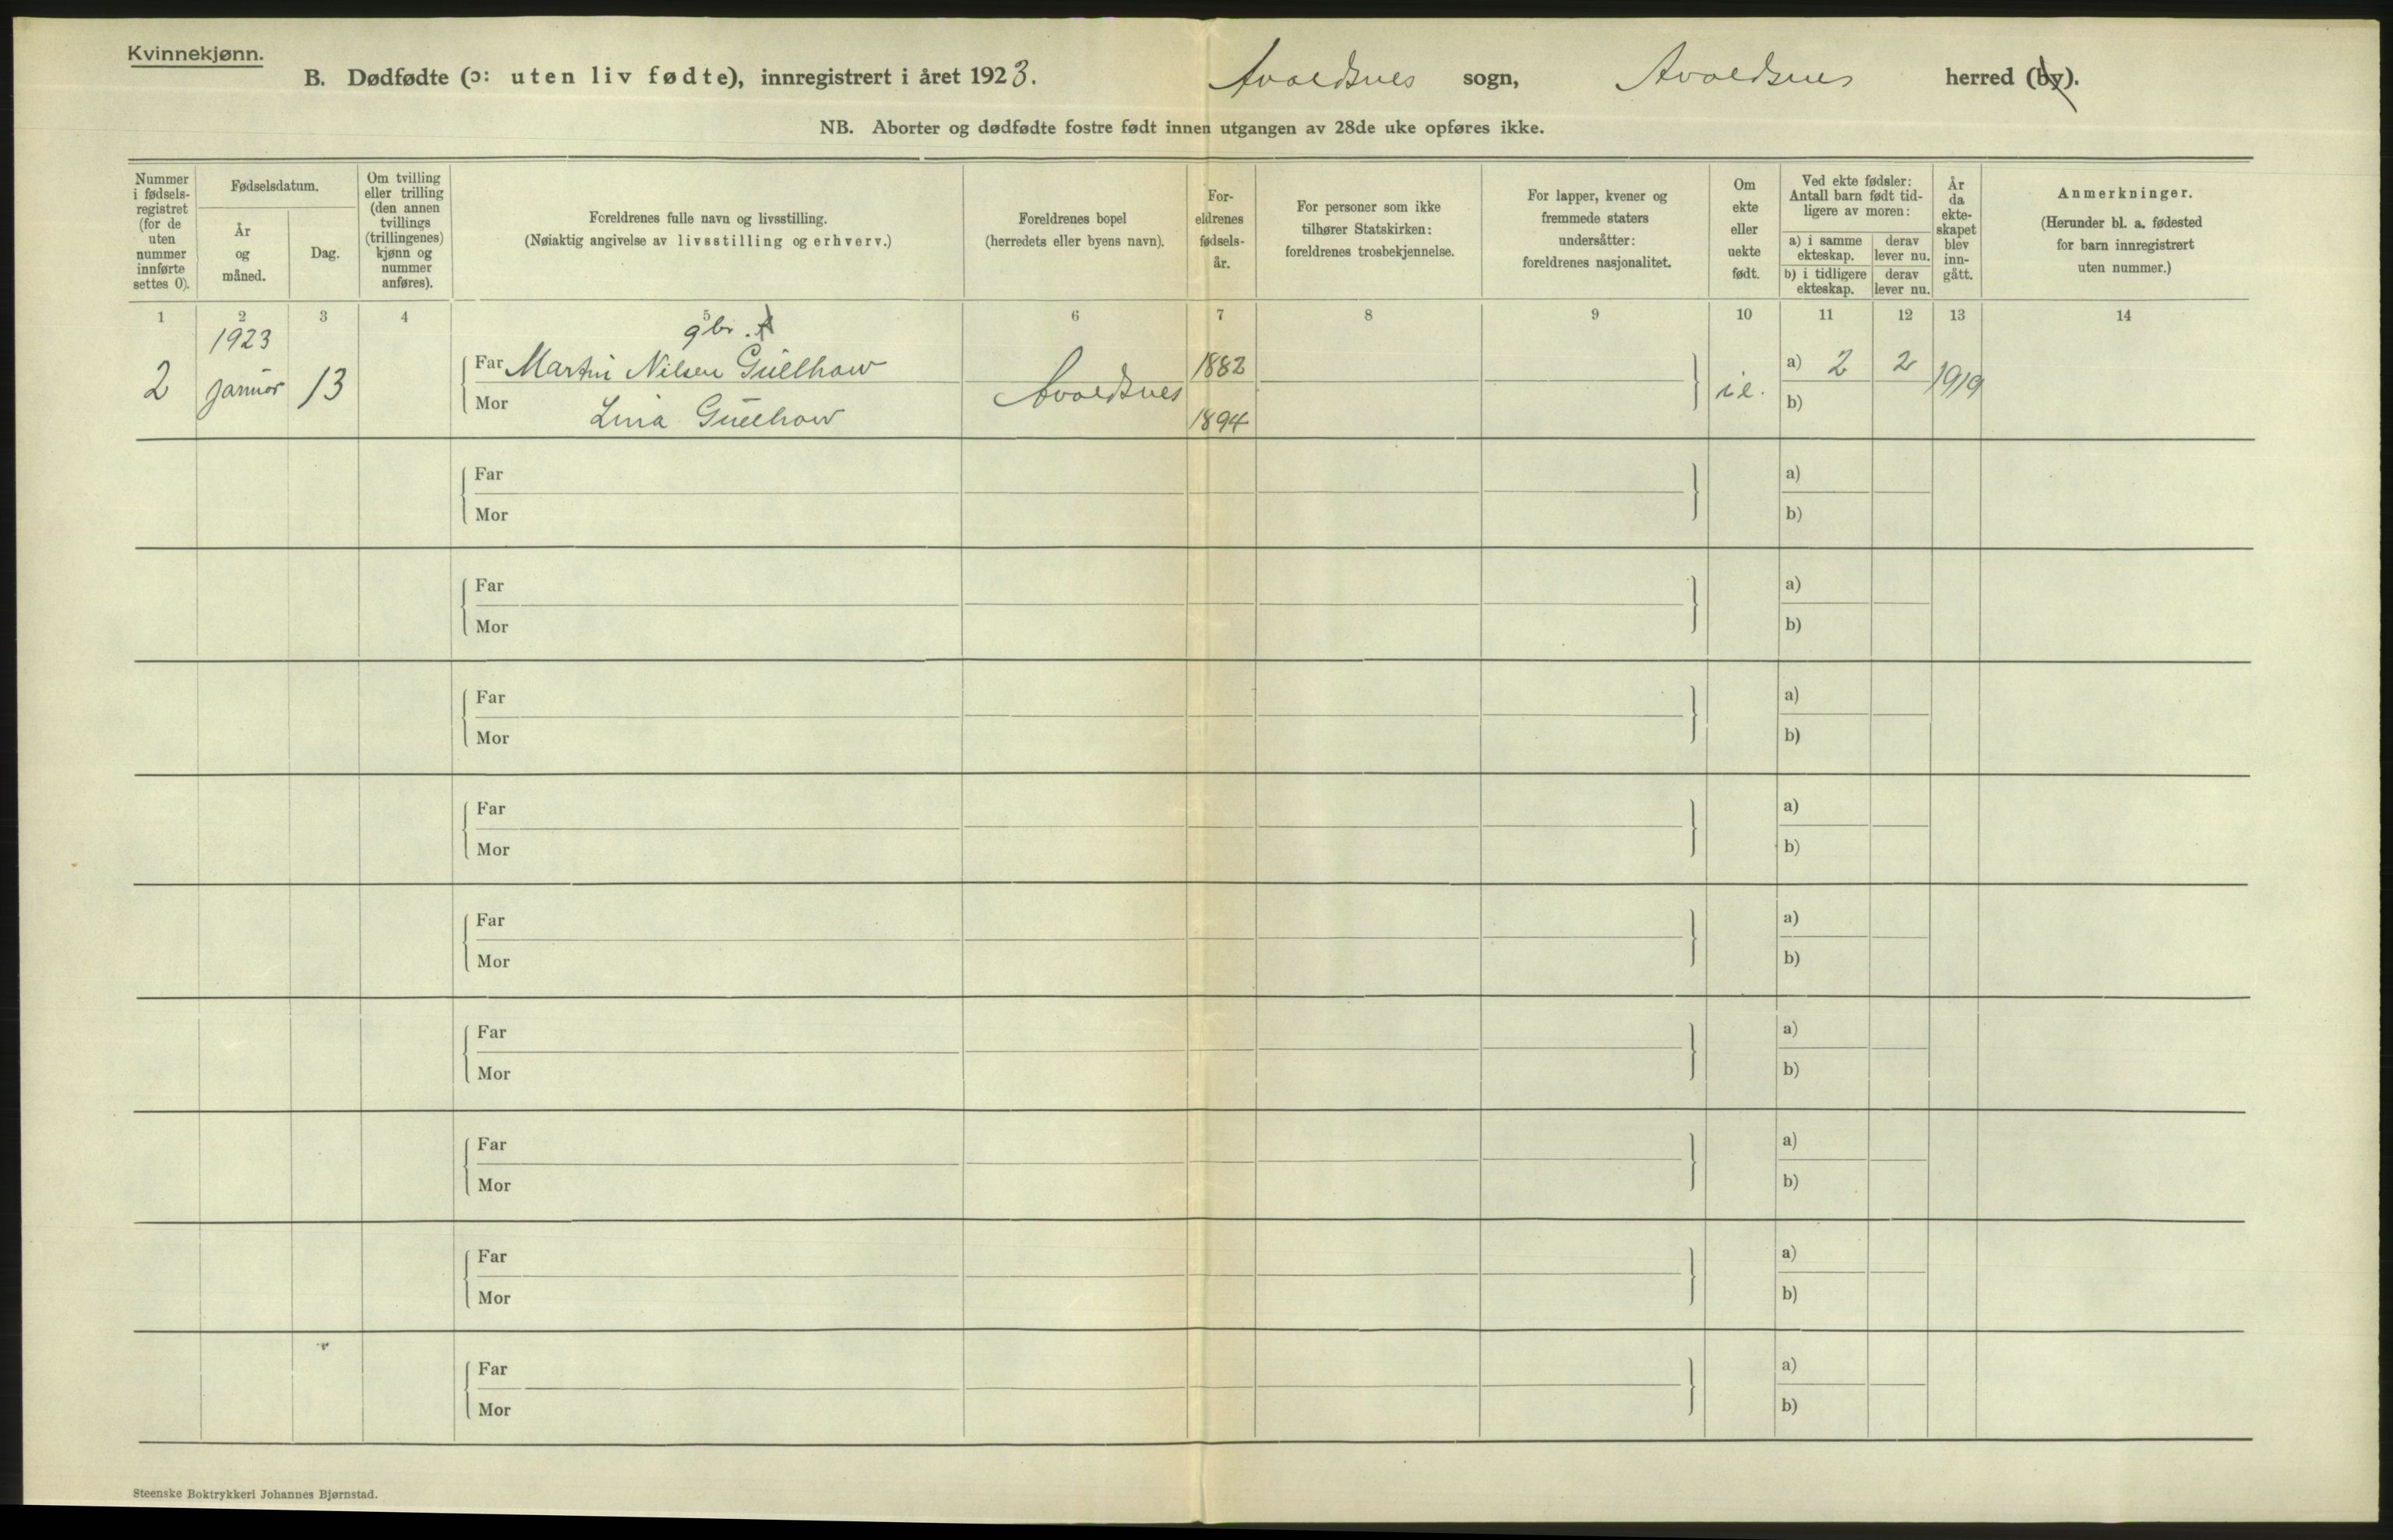 Kvinnekjønn.
B. Dødfødte (ɔ: uten liv fødte), innregistrert i året 1923. Avaldsnes sogn, Avaldsnes herred (by).
NB. Aborter og dødfødte fostre født innen utgangen av 28de uke opføres ikke.
Nummer i fødsels- registret (for de uten nummer innførte settes 0).
Fødselsdatum.
År og måned.
Dag.
Om tvilling eller trilling (den annen tvillings (trillingenes) kjønn og nummer anføres).
Foreldrenes fulle navn og livsstilling.
(Nøiaktig angivelse av livsstilling og erhverv.)
Foreldrenes bopel
(herredets eller byens navn).
For- eldrenes fødsels- år.
For personer som ikke tilhører Statskirken: foreldrenes trosbekjennelse.
For lapper, kvener og fremmede staters undersåtter: foreldrenes nasjonalitet.
Om ekte eller uekte født.
Ved ekte fødsler: Antall barn født tid- ligere av moren:
a) i samme ekteskap.
derav lever nu.
b) i tidligere ekteskap.
derav lever nu.
År da ekte- skapet blev inn- gått.
Anmerkninger.
(Herunder bl. a. fødested for barn innregistrert uten nummer.)
1 2 3 4 5 6 7 8 9 10 11 12 13 14
1923 gbr.
Far Martin Nilsen Gullhaw 1882 a) 2 2
2 januar 13 Avaldsnes i.e. 1919
Mor Lina Gullhaw 1894 b)
Far a)
Mor b)
Far a)
Mor b)
Far a)
Mor b)
Far a)
Mor b)
Far a)
Mor b)
Far a)
Mor b)
Far a)
Mor b)
Far a)
Mor b)
Far a)
Mor b)
Steenske Boktrykkeri Johannes Bjørnstad.